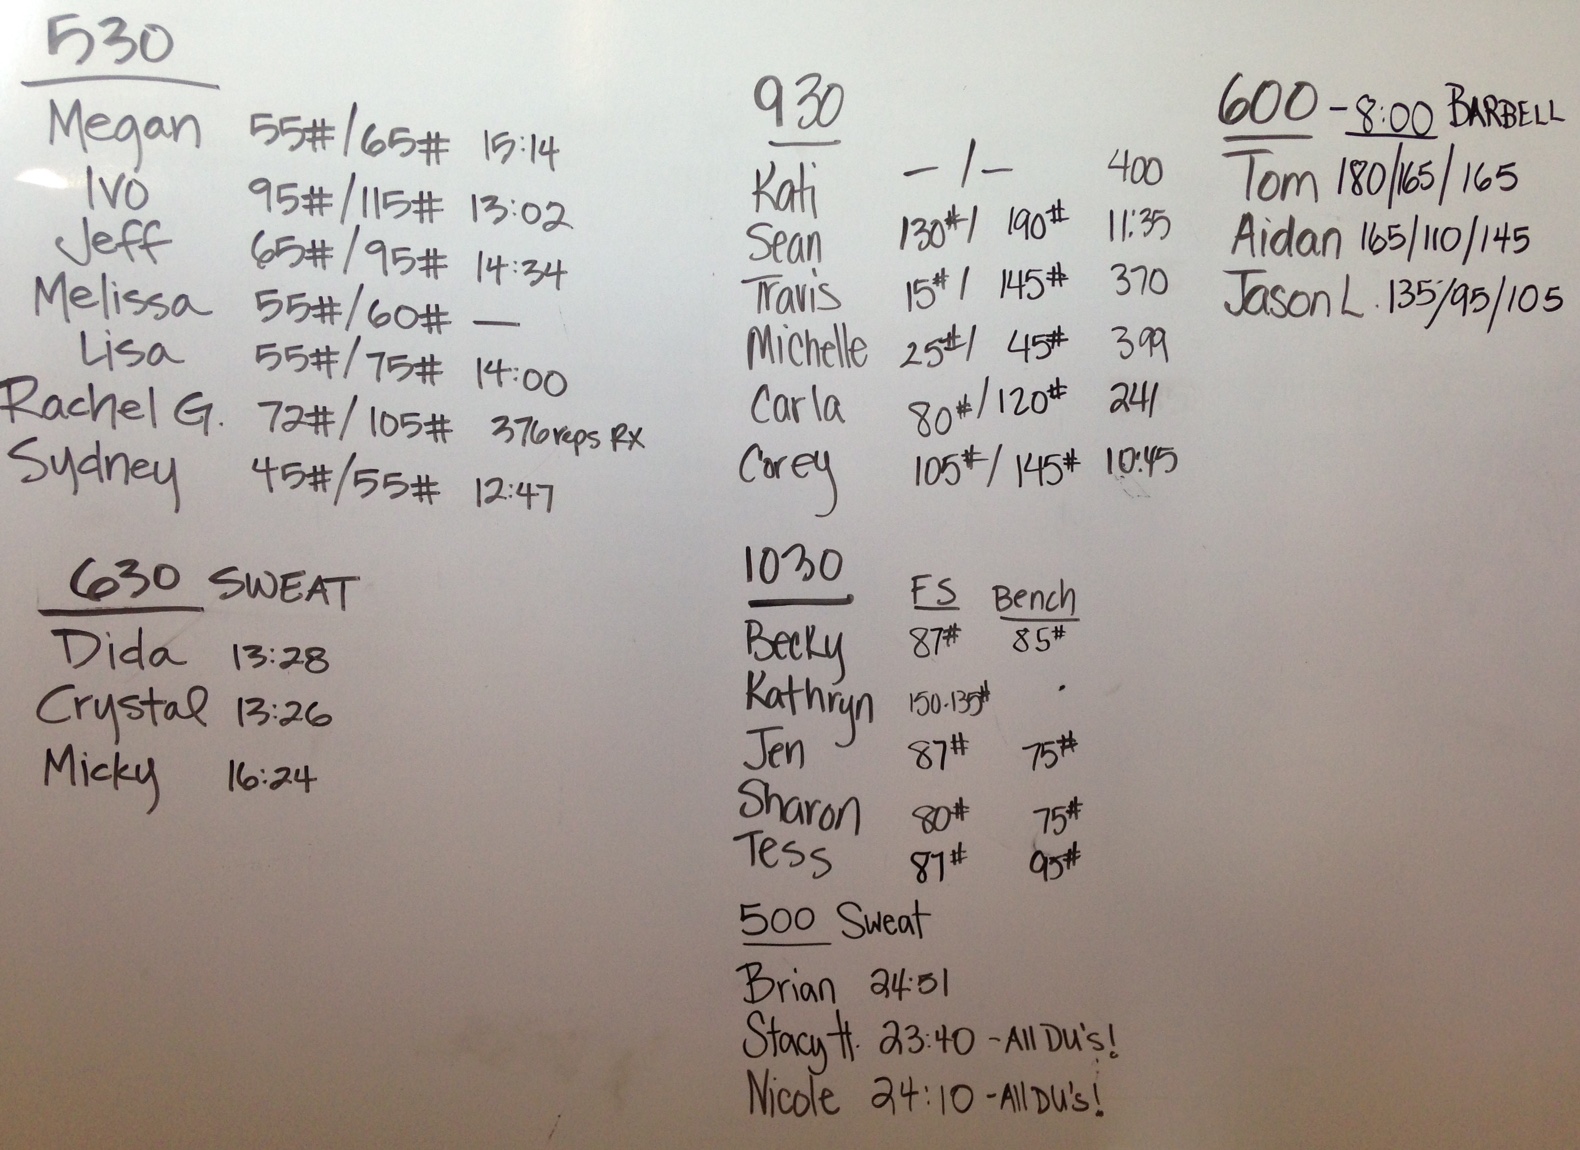 530
Megan 55#/65# 15:14
Ivo 95#/115# 13:02
Jeff 65#/95# 14:34
Melissa 55#/60# —
Lisa 55#/75# 14:00
Rachel G. 72#/105# 376 reps RX
Sydney 45#/55# 12:47
630 SWEAT
Dida 13:28
Crystal 13:26
Micky 16:24
930
Kati —/— 400
Sean 130#/ 190# 11:35
Travis 15#/ 145# 370
Michelle 25#/ 45# 399
Carla 80#/120# 241
Corey 105#/145# 10:45
1030 FS Bench
Becky 87# 85#
Kathryn 150.135# .
Jen 87# 75#
Sharon 80# 75#
Tess 87# 95#
500 Sweat
Brian 24:51
Stacy H. 23:40 -All DU's!
Nicole 24:10 -All DU's!
600 - 8:00 BARBELL
Tom 180/165/165
Aidan 165/110/145
Jason L. 135/95/105